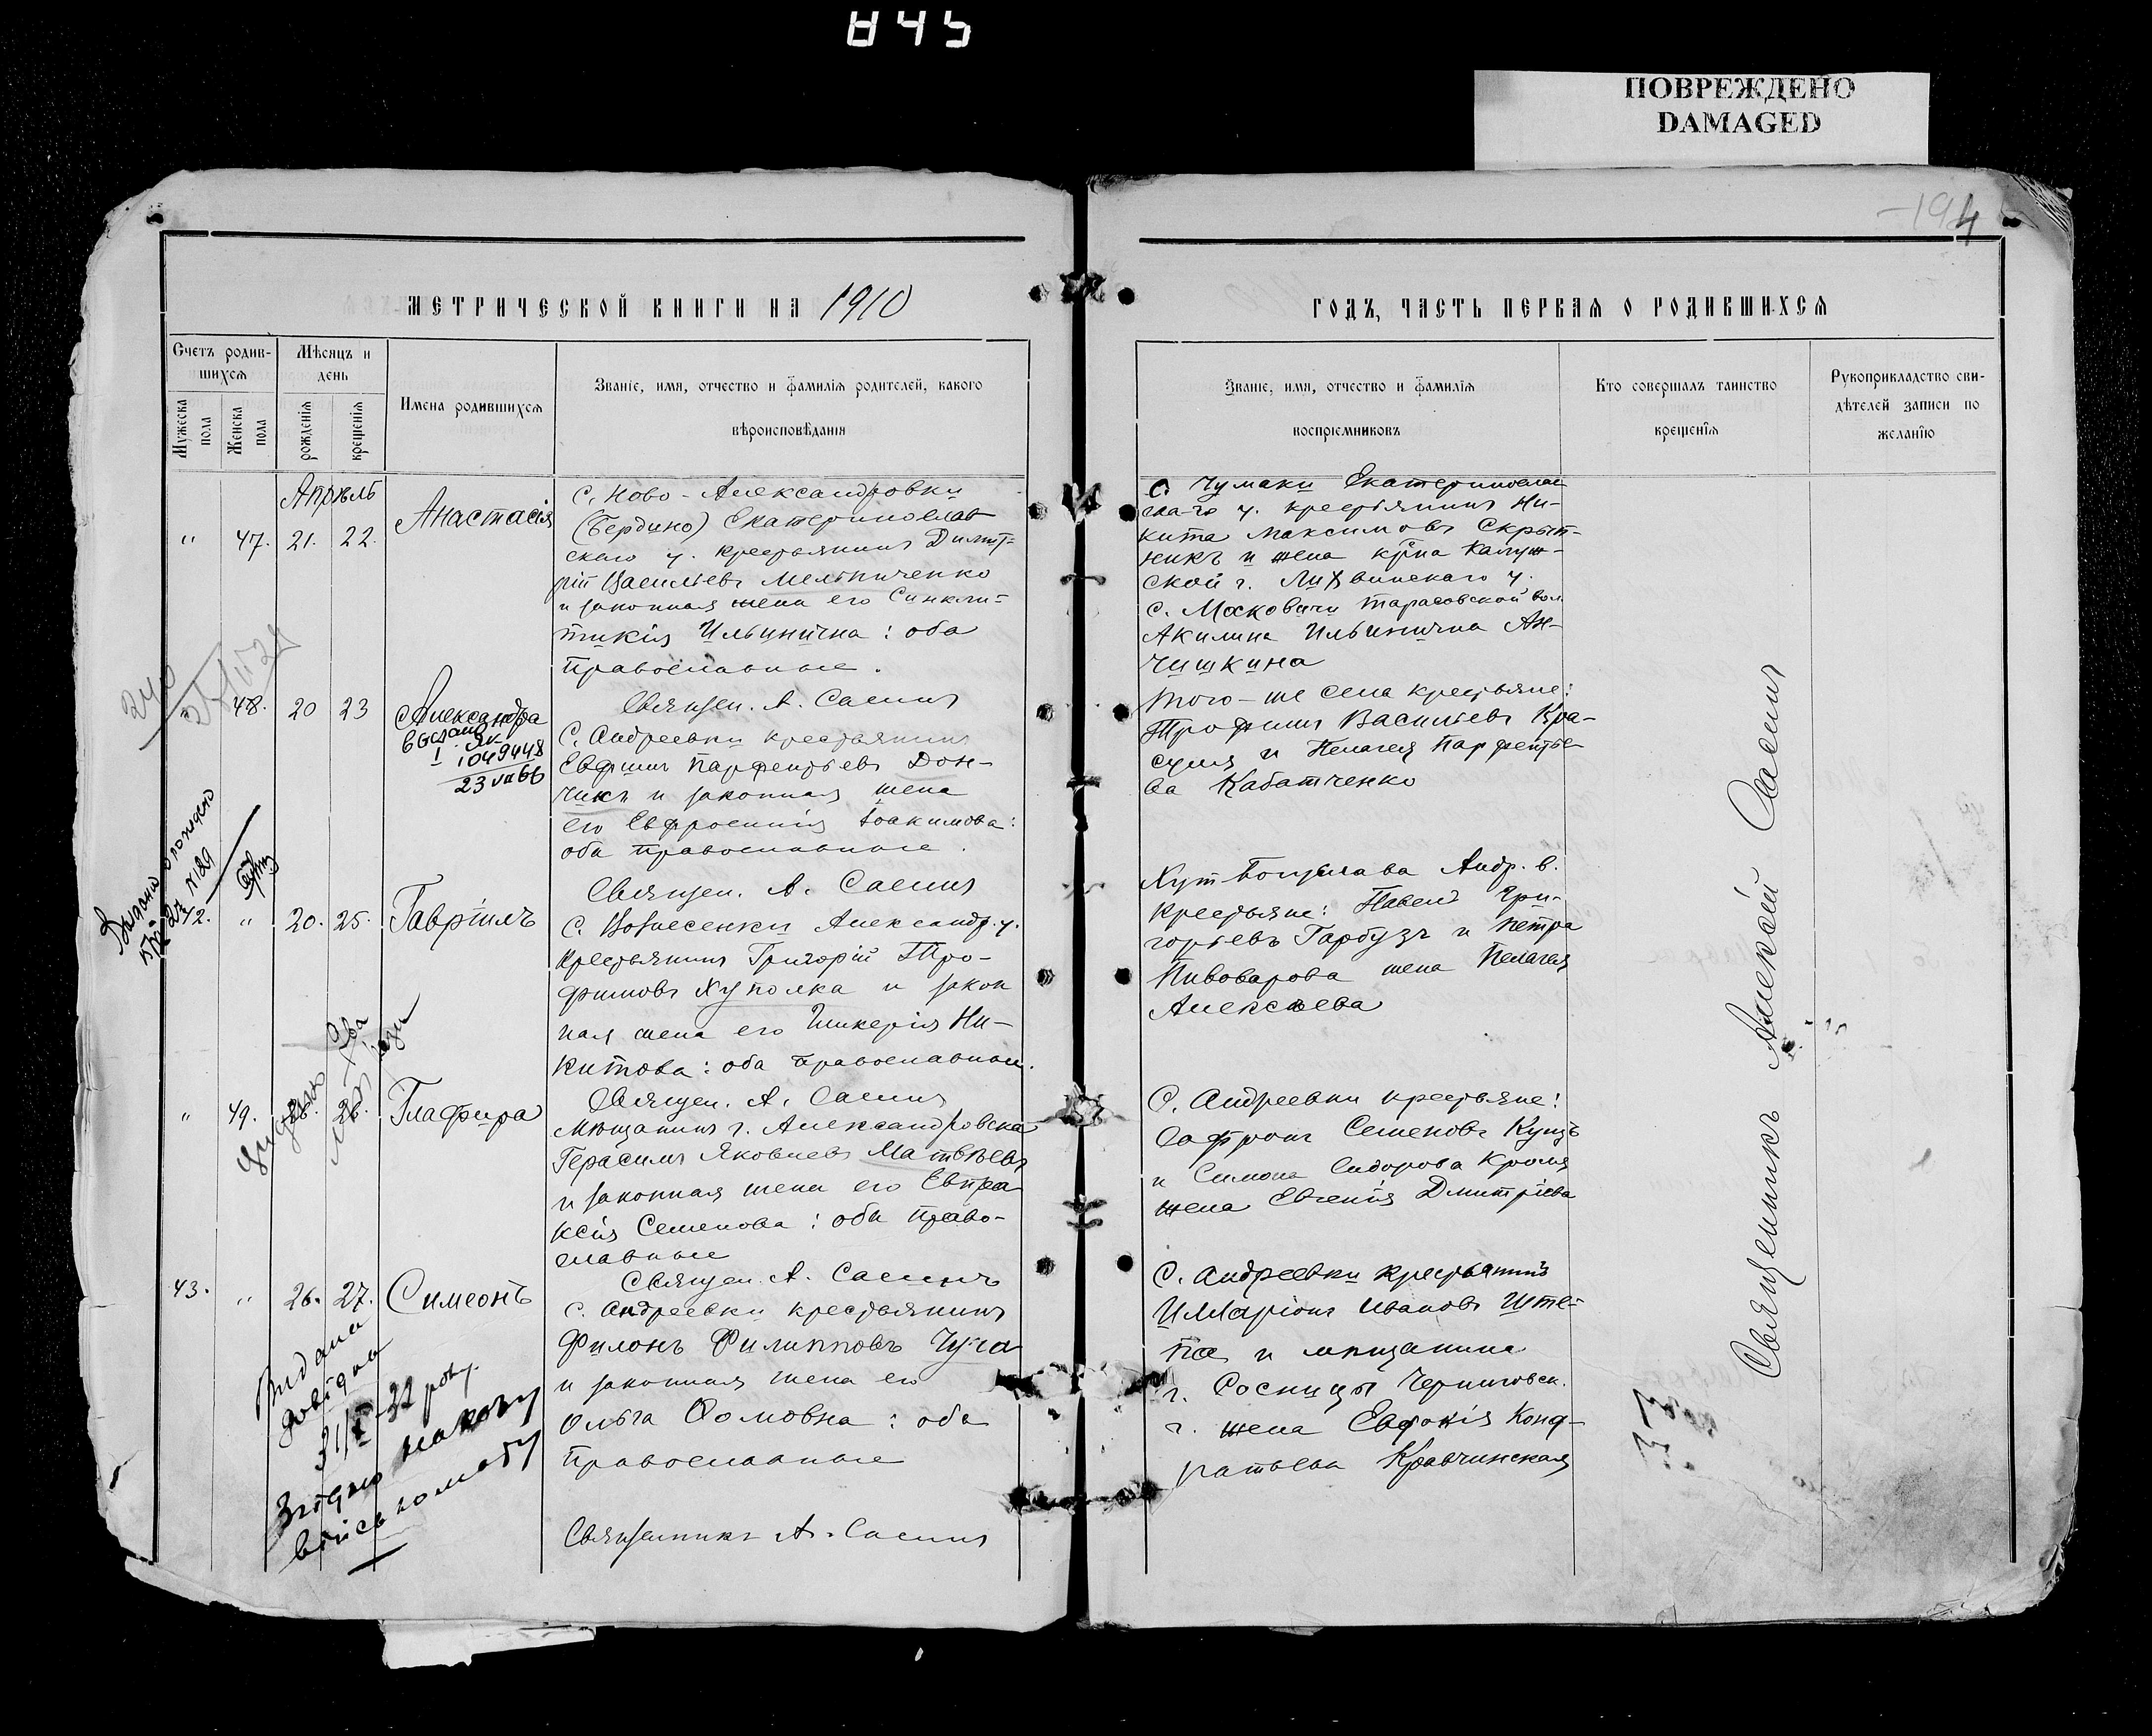 845
ПОВРЕЖДЕНО
DAMAGED
194
МЕТРИЧЕСКОЙ КНИГИ НА 1910
ГОДЪ, ЧАСТЬ ПЕРВАЯ О РОДИВШИХСЯ
Счетъ родив-
шихся
Мужеска пола
Женска пола
Мѣсяцъ и день
рожденія
крещенія
Имена родившихся
Званіе, имя, отчество и фамилія родителей, какого
вѣроисповѣданія
Званіе, имя, отчество и фамилія
воспріемниковъ
Кто совершалъ таинство
крещенія
Рукоприкладство сви-
дѣтелей записи по
желанію
Апрѣль
" 47. 21. 22. Анастасія
С. Ново-Александровки
(Бердино) Екатеринослав
скаго у. крестьянинъ Димит-
рій Васильевъ Мельниченко
и законная жена его Синкли-
тикія Ильинична: оба
православные.
Священ. А. Саенъ
С. Чумаки Екатеринослав
ска-го у. крестьянинъ Ни-
кита Максимовъ Скрып-
никъ и жена кр-на Калуж-
ской г. Лихвинскаго у.
с. Московичи Тарасовской вол.
Акилина Ильинична Ан-
чишкина
" 48. 20 23 Александра
I ЯК
1049448
23 VII 66
С. Андреевки крестьянинъ
Евфимъ Парфентьевъ Дон-
чикъ и законная жена
его Евфросинія Іоакимова:
оба православные.
Священ. А. Саенъ
Того-же села крестьяне:
Трофимъ Васильевъ Кра-
и Пелагея Парфентье-
ва Кабатченко
42. " 20. 25. Гавріилъ
С. Вознесенки Александр. у.
крестьянинъ Григорій Тро-
фимовъ Хуполка и закон
ная жена его Гликерія Ни-
китова: оба православные.
Священ. А. Саенъ
Андр. в.
крестьяне: Павелъ Гри-
горьевъ Гарбузъ и Петра
Пивоварова жена Пелагея
Алексѣева
" 49. 26. Глафира
Мѣщанинъ г. Александровска
Герасимъ Яковлевъ Матвѣевъ
и законная жена его Евпра
ксія Семенова: оба право-
славные
Священ. А. Саенъ
С. Андреевки крестьяне:
Софронъ Семеновъ Куцъ
и Симона Сидорова Кроля
жена Евгенія Дмитріева
43. " 26. 27. Симеонъ
С. Андреевки крестьянинъ
Филонъ Филипповъ Чуча
и законная жена его
Ольга Фомовна: оба
православные
Священникъ А. Саенъ
С. Андреевки крестьянинъ
Илларіонъ ИвановъШте-
па и мѣщанина
г. Сосницы Черниговск.
г. жена Евдокія Конд-
ратьева Кравчинская
Священникъ Алексій Саенъ
240
Видана
довідка
32 року
33